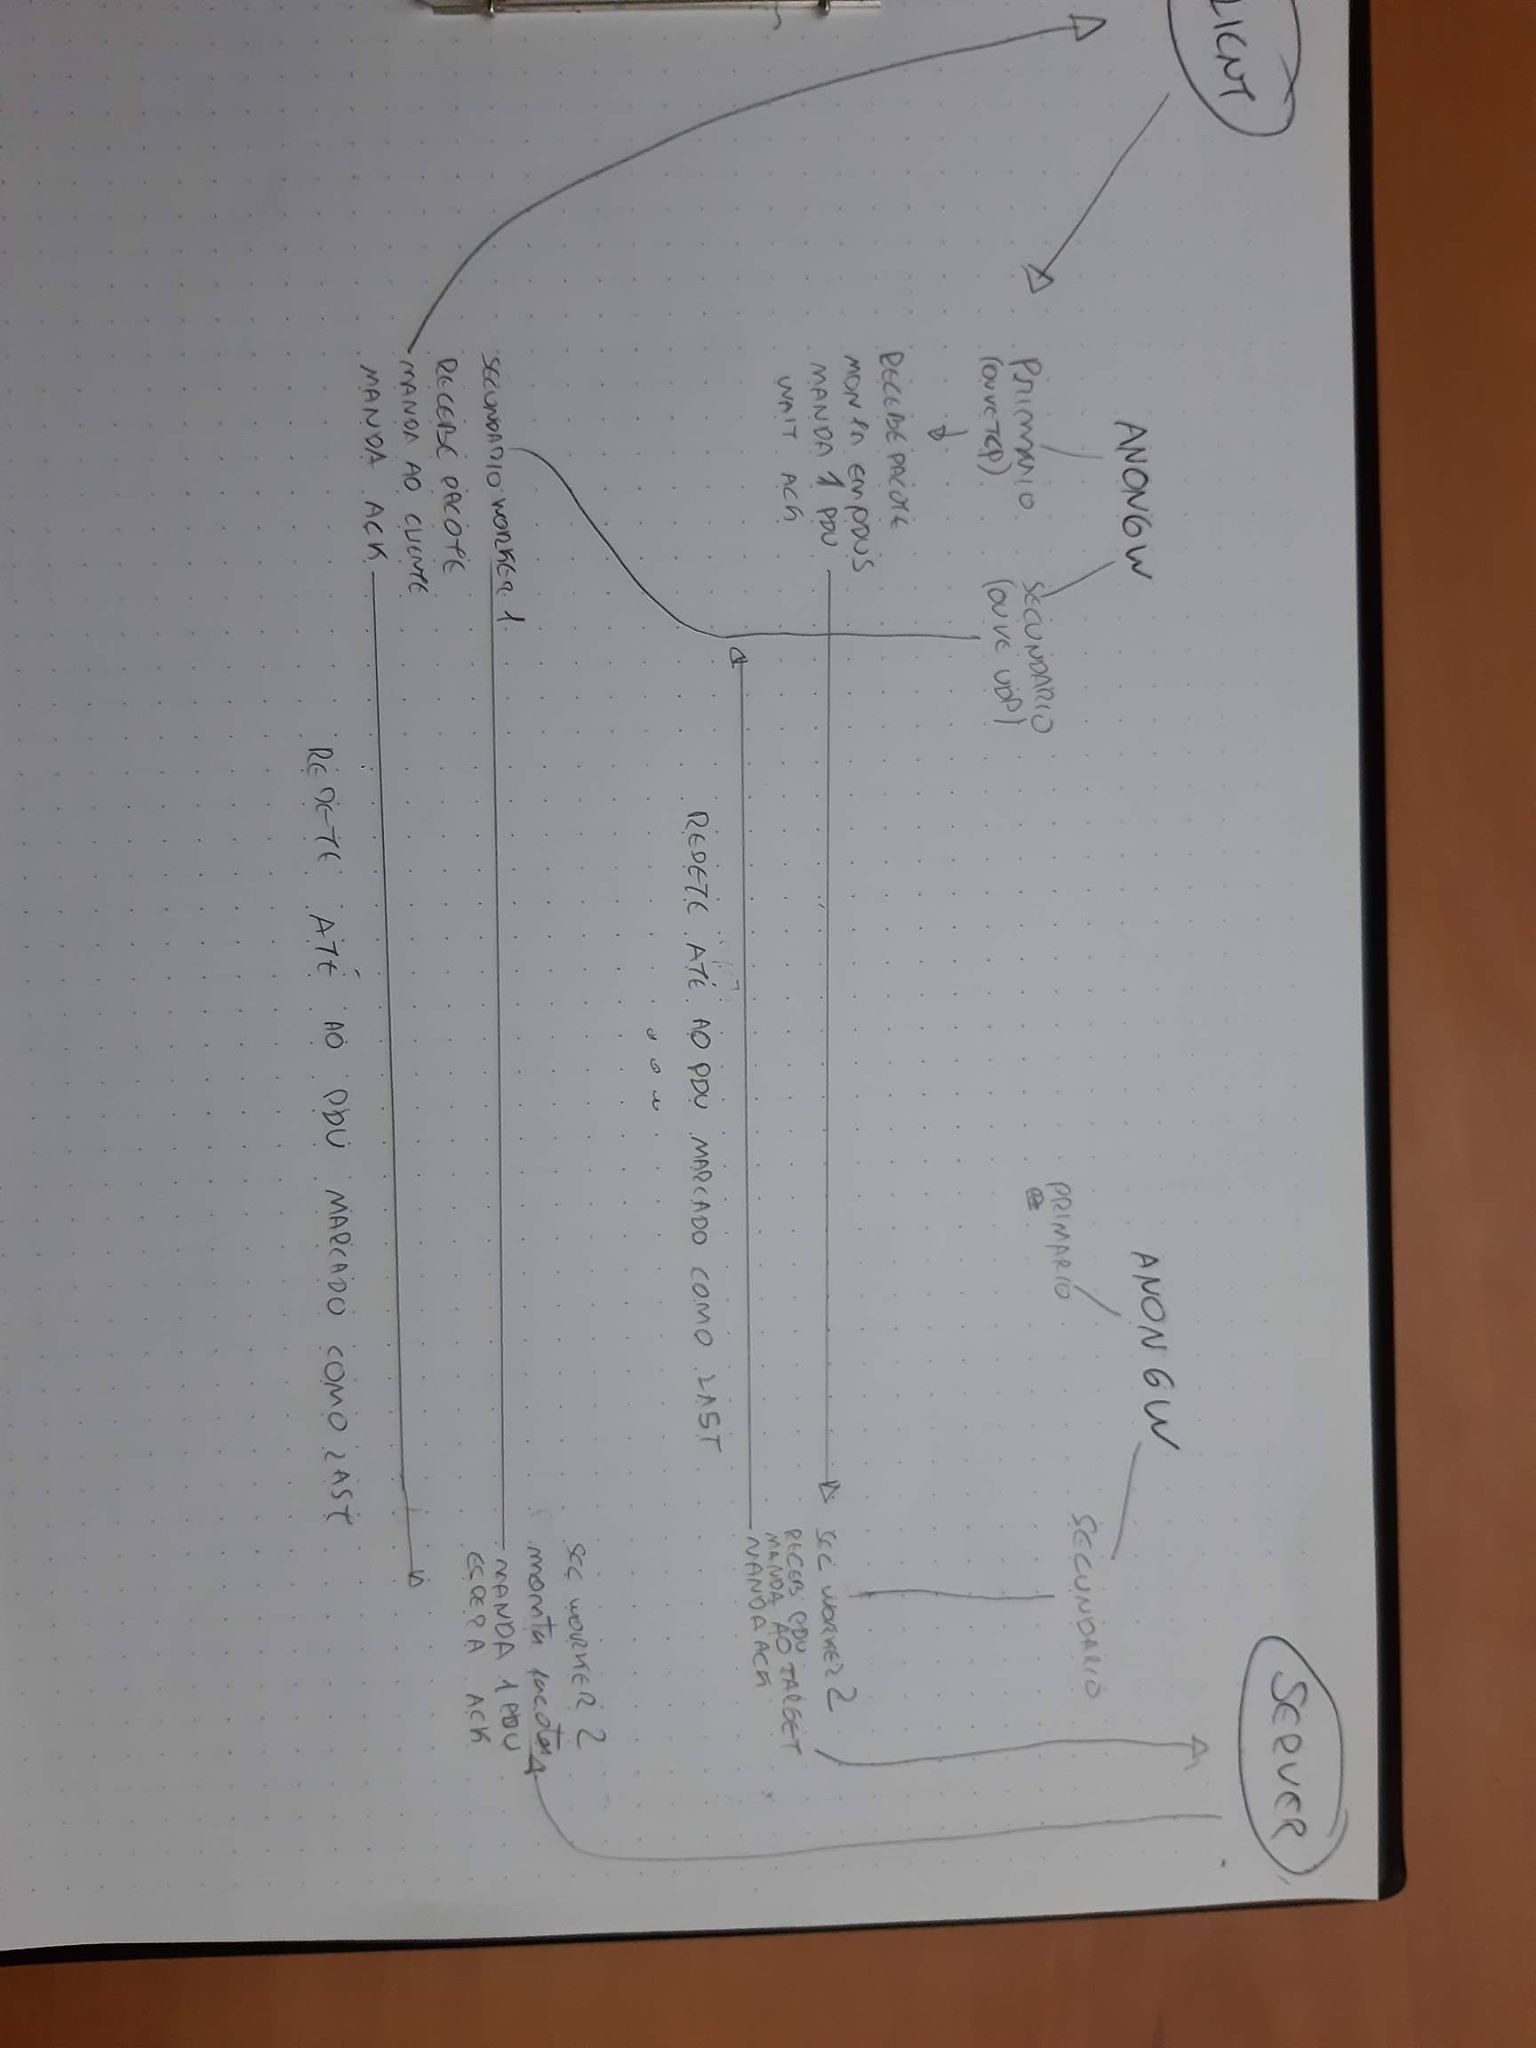 LIENT
SERVER
ANONGW
PRIMARIO
(OUVE TCP)
SECUNDARIO
(OUVE UDP)
RECEBE PACOTE
MONTA EM PDUS
MANDA 1 PDU
WAIT ACK
ANON GW
PRIMARIO
SECUNDARIO
SEC WORKER 2
RECEB PDU
MANDA AO TARGET
MANDA ACK
REPETE ATÉ AO PDU MARCADO COMO LAST
...
SEC WORKER 2
monta
MANDA 1 PDU
ESPERA ACK
SECUNDARIO WORKER 1
RECEBE PACOTE
MANDA AO CLIENTE
MANDA ACK
REPETE ATÉ AO PDU MARCADO COMO LAST